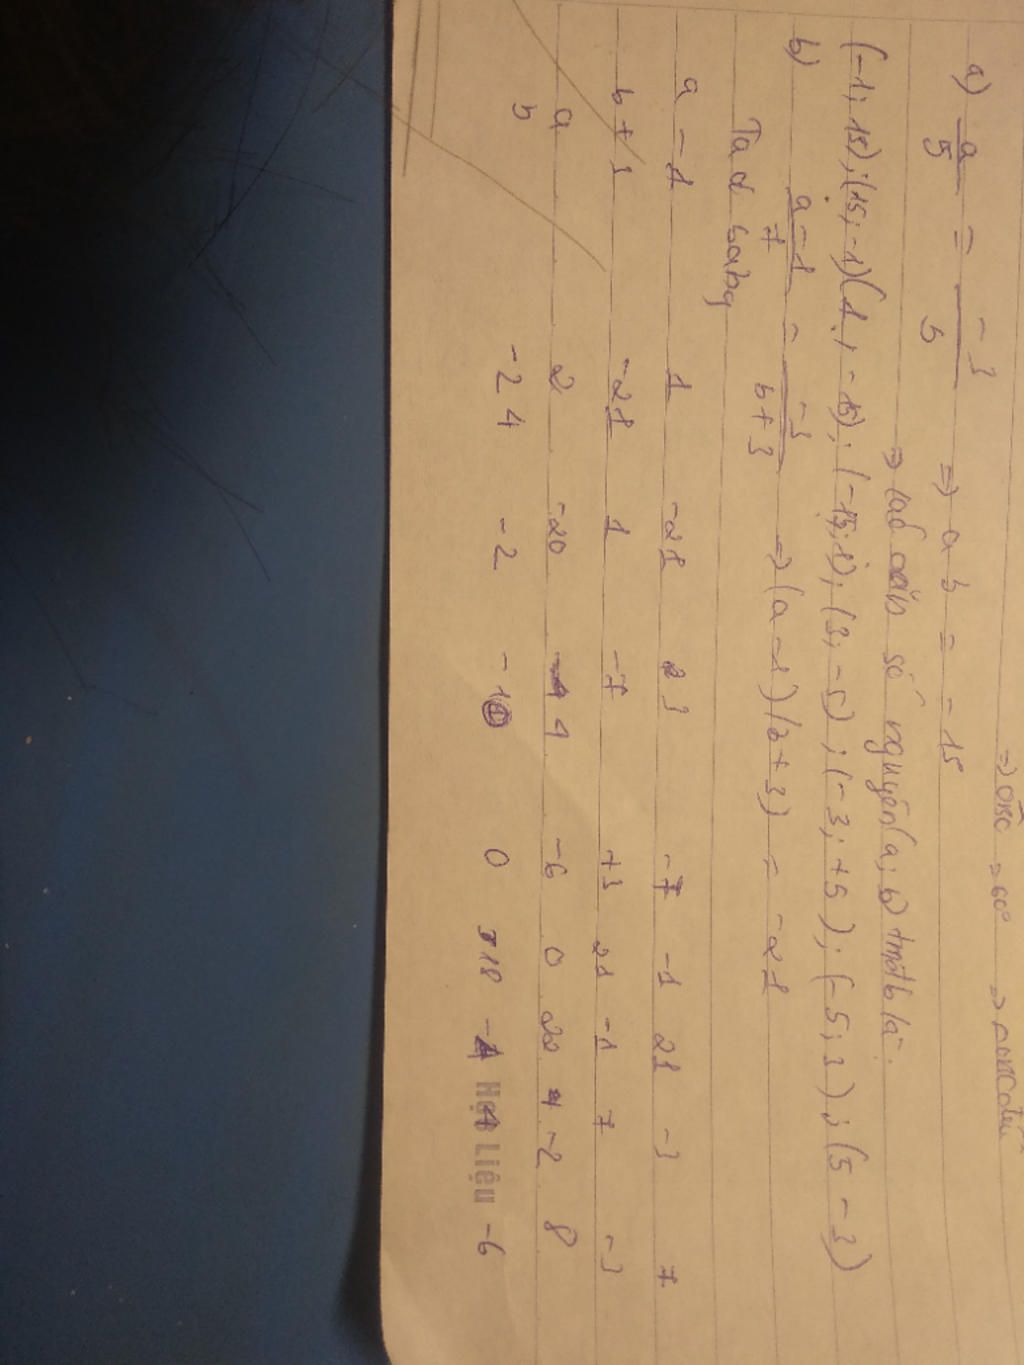 ⇒ OBC = 60° ⇒
a) a/5 = -3/b ⇒ a b = -15
⇒ số nguyên (a; b) là:
(-1; 15); (15; -1) (1; -15); (-15; 1); (3; -5); (-3; +5); (-5; 3); (5 -3)
b) a-1/7 = -3/b+3 ⇒ (a-1)(b+3) = -21
Ta có bảng
a-1 1 -21 3 -7 -1 21 -3 7
b+3 -21 1 -7 +3 21 -1 7 -3
a 2 -20 4 -6 0 22 -2 8
b -24 -2 -10 0 18 -4 4 -6
Học Liệu